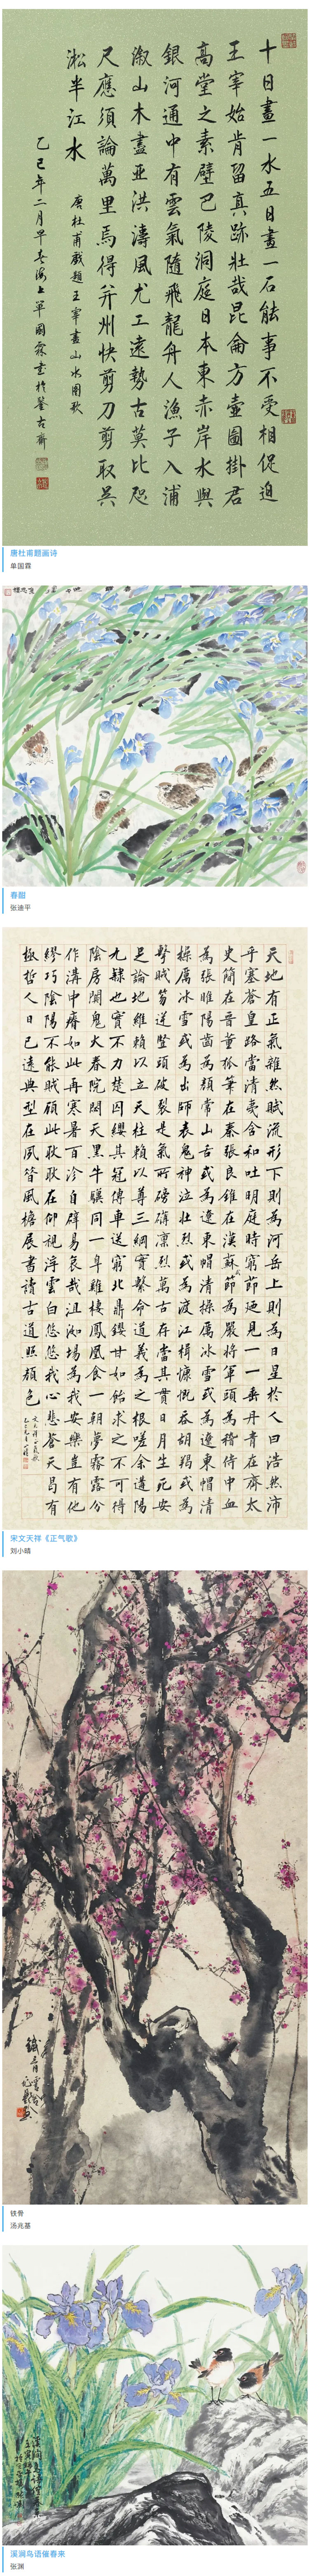 十日畫一水五日畫一石能事不受相促迫
王宰始肯留真跡壯哉昆侖方壺圖掛君
高堂之素壁巴陵洞庭日本東赤岸水與
銀河通中有雲氣隨飛龍舟人漁子入浦
溆山木盡亞洪濤風尤工遠勢古莫比咫
尺應須論萬里焉得并州快剪刀剪取吳
淞半江水
唐杜甫戲題王宰畫山水圖歌
乙巳年二月早春海上單國霖書於鑒古齋
唐杜甫题画诗
单国霖
春酣
张迪平
天地有正氣雜然賦流形下則為河岳上則為日星於人曰浩然沛
乎塞蒼皇路當清夷含和吐明庭時窮節迺見一一垂丹青在齊太
史簡在晉董狐筆在秦張良錐在漢蘇武節為嚴將軍頭為嵇侍中血
為張睢陽齒為顏常山舌或為遼東帽清操厲冰雪或為遼東帽清
操厲冰雪或為出師表鬼神泣壯烈或為渡江楫慷慨吞胡羯或為
擊賊笏逆豎頭破裂是氣所磅礴凜烈萬古存當其貫日月生死安
足論地維賴以立天柱賴以尊三綱實繫命道義為之根嗟余遘陽
九隸也實不力楚囚纓其冠傳車送窮北鼎鑊甘如飴求之不可得
陰房闃鬼火春院閟天黑牛驥同一皁雞棲鳳凰食一朝蒙霧露分
作溝中瘠如此再寒暑百沴自辟易哀哉沮洳場為我安樂豈有他
繆巧陰陽不能賊顧此耿耿在仰視浮雲白悠悠我心悲蒼天曷有
極哲人日已遠典型在夙昔風檐展書讀古道照顏色
文天祥正氣歌
宋文天祥《正气歌》
刘小晴
鐵骨
铁骨
汤兆基
溪澗鳥語催春來
溪涧鸟语催春来
张渊